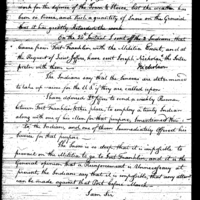 work for the defence of the Town & House, but the weather has
been so severe, and such a quantity of Snow on the Ground
that it has greatly retarded the work
On the 26th instant I sent off the 2 Indians that
came from Fort Franklin with the Militia Escort, and at
the request of Lieut Jeffers, have sent Joseph Nicholson the Inter
preter with them.
The Indians say that the Senecas are determined
to take up arms for the U.S. if they are called upon.
I have advised Lt Jeffers to send a weekly Runner
between Fort Franklin & this place, to employ a trusty Indian
along with one of his Men for that purpose,
to the Indian, and one of them immediately offered his
Service for that purpose.
The Snow is so deep, that it is impossible to
prevail on the Militia to go to Fort Franklin, and it is the
general opinion that a Reinforcement is unnecessary at
present, the Indians say that it is impossible that any effort
can be made against that Post before March.
I am Sir